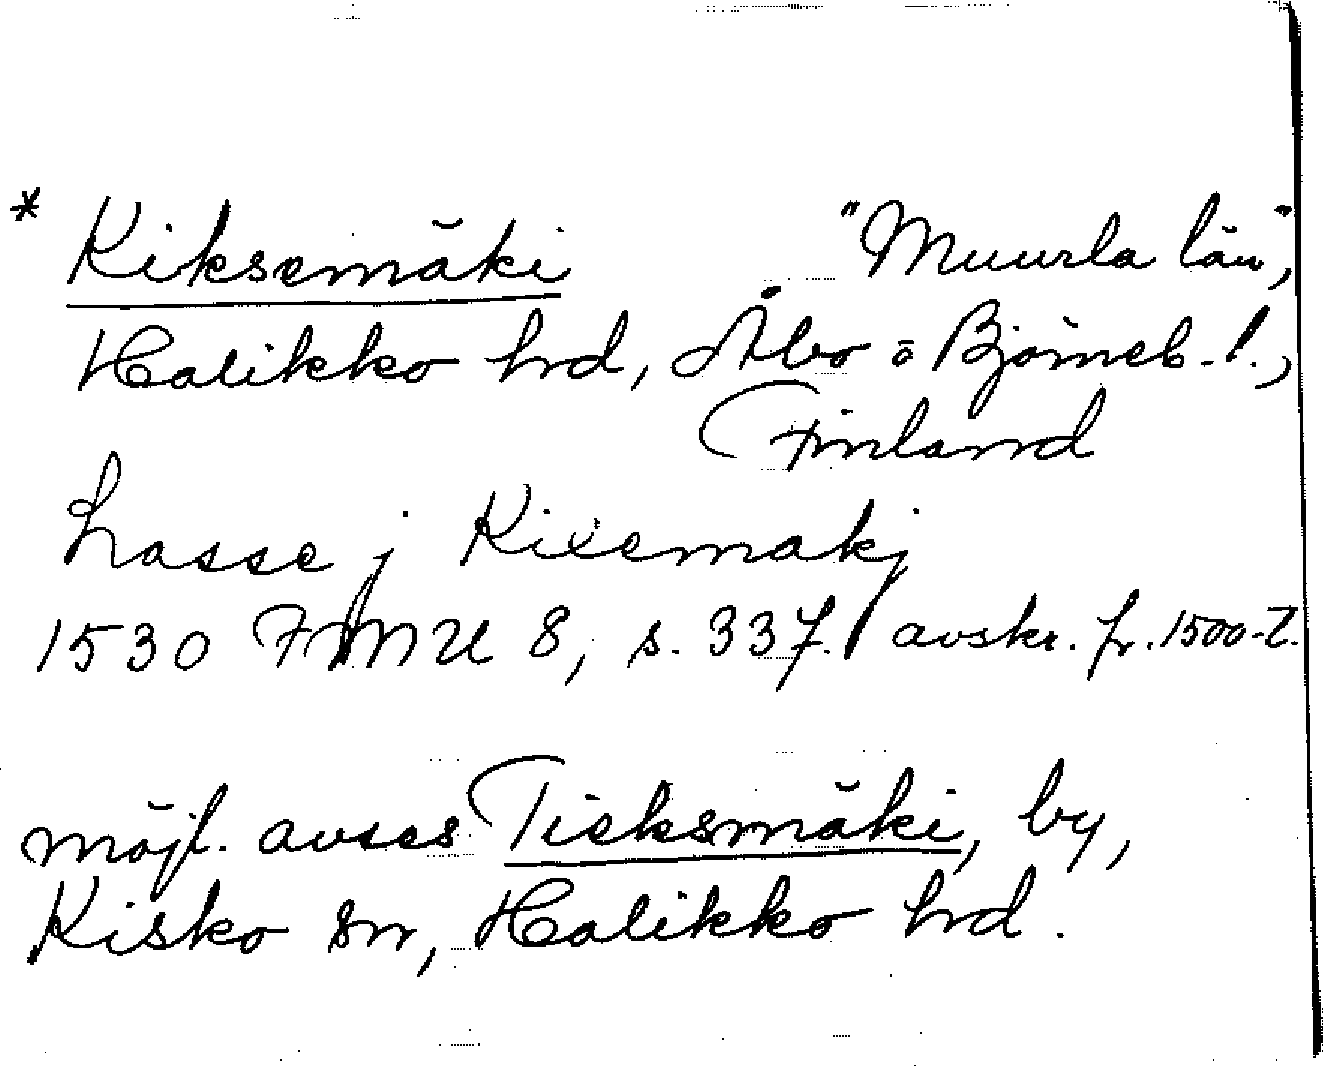 * Kiksemäki "Muurla län",
Halikko hrd, Åbo o Björneb. l.,
Finland
Lasse j Kixemakj
1530 FMU 8, s. 337. avskr. fr. 1500-t.
möjl. avses Tieksmäki, by,
Kisko sn, Halikko hrd.